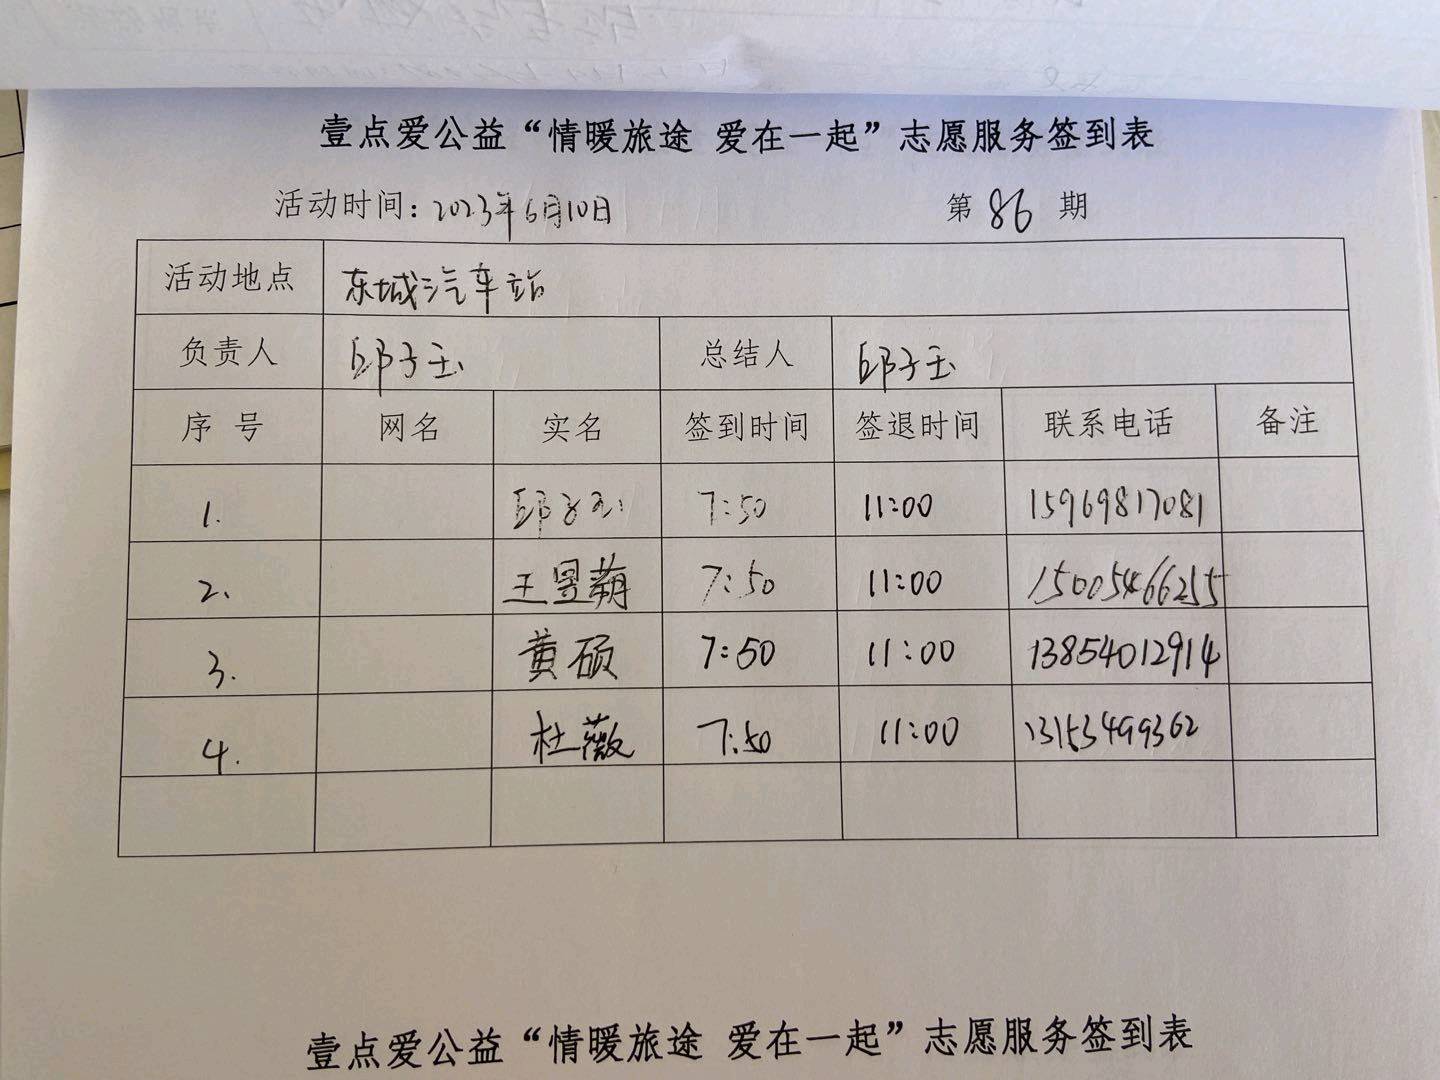 壹点爱公益“情暖旅途 爱在一起”志愿服务签到表
活动时间：2023年6月10日 第 86 期
活动地点 东城汽车站
负责人 邱子玉 总结人 邱子玉
序 号 网名 实名 签到时间 签退时间 联系电话 备注
1. 邱子玉 7:50 11:00 15969817081
2. 王昱蒴 7:50 11:00 15005466255
3. 黄硕 7:50 11:00 13854012914
4. 杜薇 7:50 11:00 13153499362
壹点爱公益“情暖旅途 爱在一起”志愿服务签到表